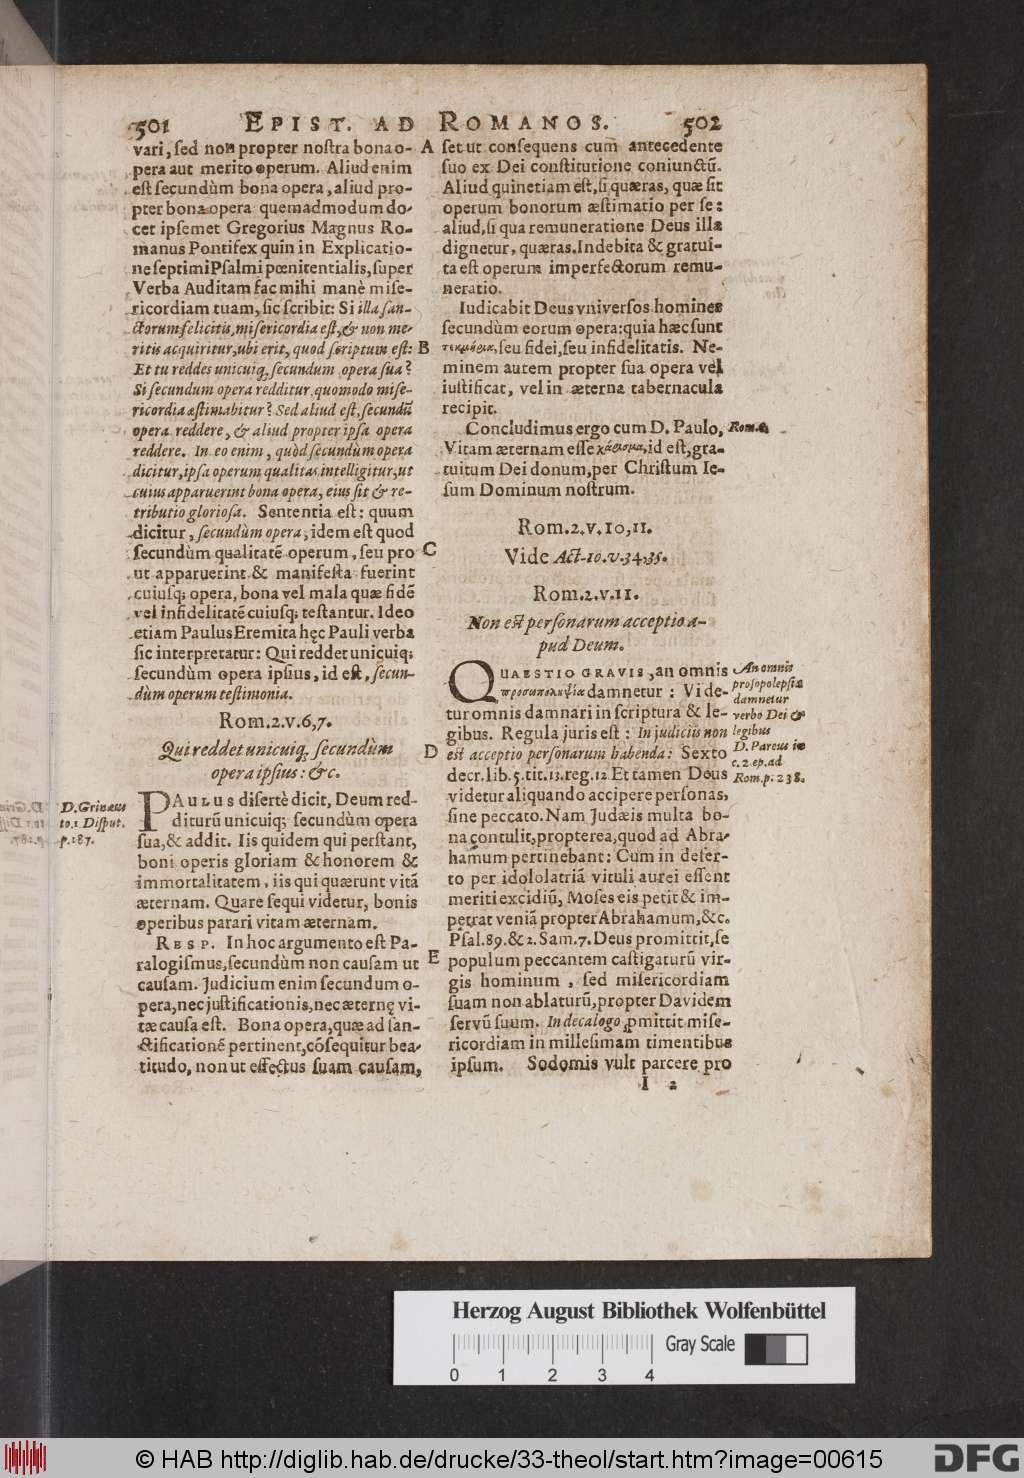 501 EPIST. AD ROMANOS. 502
vari, sed non propter nostra bona o-
pera aut merito operum. Aliud enim
est secundùm bona opera, aliud pro-
pter bona opera quemadmodum do-
cet ipsemet Gregorius Magnus Ro-
manus Pontifex quin in Explicatio-
ne septimi Psalmi pœnitentialis, super
Verba Auditam fac mihi manè mise-
ricordiam tuam, sic scribit: Si illa san-
ctorum felicitis, misericordia est, & non me-
ritis acquiritur, ubi erit, quod scriptum est:
Et tu reddes unicuiq; secundum opera sua?
Si secundum opera redditur, quomodo mise-
ricordia æstimabitur? Sed aliud est, secundũ
opera reddere, & aliud propter ipsa opera
reddere. In eo enim, quòd secundùm opera
dicitur, ipsa operum qualitas intelligitur, ut
cuius apparuerint bona opera, eius sit & re-
tributio gloriosa. Sententia est: quum
dicitur, secundùm opera, idem est quod
secundùm qualitatẽ operum, seu pro
ut apparuerint & manifesta fuerint
cuiusq; opera, bona vel mala quæ fidẽ
vel infidelitatẽ cuiusq; testantur. Ideo
etiam Paulus Eremita hęc Pauli verba
sic interpretatur: Qui reddet unicuiq;
secundùm opera ipsius, id est, secun-
dùm operum testimonia.
Rom. 2. v. 6, 7.
Qui reddet unicuiq; secundùm
opera ipsius: &c.
D. Grinæus
to. 1 Disput.
p. 187.
PAULUS disertè dicit, Deum red-
diturũ unicuiq; secundùm opera
sua, & addit. Iis quidem qui perstant,
boni operis gloriam & honorem &
immortalitatem, iis qui quærunt vitã
æternam. Quare sequi videtur, bonis
operibus parari vitam æternam.
RESP. In hoc argumento est Pa-
ralogismus, secundùm non causam ut
causam. Judicium enim secundum o-
pera, nec justificationis, nec æternę vi-
tæ causa est. Bona opera, quæ ad san-
ctificationẽ pertinent, cõsequitur bea-
titudo, non ut effectus suam causam,
A
B
C
D
E
set ut consequens cum antecedente
suo ex Dei constitutione coniunctũ.
Aliud quinetiam est, si quæras, quæ sit
operum bonorum æstimatio per se:
aliud, si qua remuneratione Deus illa
dignetur, quæras. Indebita & gratuí-
ta est operum imperfectorum remu-
neratio.
Iudicabit Deus vniversos homines
secundùm eorum opera: quia hæc sunt
τεκμήρια, seu fidei, seu infidelitatis. Ne-
minem autem propter sua opera vel
iustificat, vel in æterna tabernacula
recipit.
Concludimus ergo cum D. Paulo, Rom. 6.
Vitam æternam esse χάρισμα, id est, gra-
tuitum Dei donum, per Christum Ie-
sum Dominum nostrum.
Rom. 2. v. 10, 11.
Vide Act. 10. v. 34, 35.
Rom. 2. v. 11.
Non est personarum acceptio a-
pud Deum.
QUAESTIO GRAVIS, an omnis
προσωποληψία damnetur: Vide-
tur omnis damnari in scriptura & le-
gibus. Regula juris est: In judiciis non
est acceptio personarum habenda: Sexto
decr. lib. 5. tit. 13. reg. 12 Et tamen Deus
videtur aliquando accipere personas,
sine peccato. Nam Judæis multa bo-
na contulit, propterea, quod ad Abra-
hamum pertinebant: Cum in deser-
to per idololatriã vituli aurei essent
meriti excidiũ, Moses eis petit & im-
petrat veniã propter Abrahamum, &c.
Psal. 89. & 2. Sam. 7. Deus promittit, se
populum peccantem castigaturũ vir-
gis hominum, sed misericordiam
suam non ablaturũ, propter Davidem
servũ suum. In decalogo ꝓmittit mise-
ricordiam in millesimam timentibus
ipsum. Sodomis vult parcere pro
An omnis
prosopolepsia
damnetur
verbo Dei &
legibus
D. Pareus in
c. 2. ep. ad
Rom. p. 238.
I 2
Herzog August Bibliothek Wolfenbüttel
Gray Scale
0 1 2 3 4
© HAB http://diglib.hab.de/drucke/33-theol/start.htm?image=00615
DFG